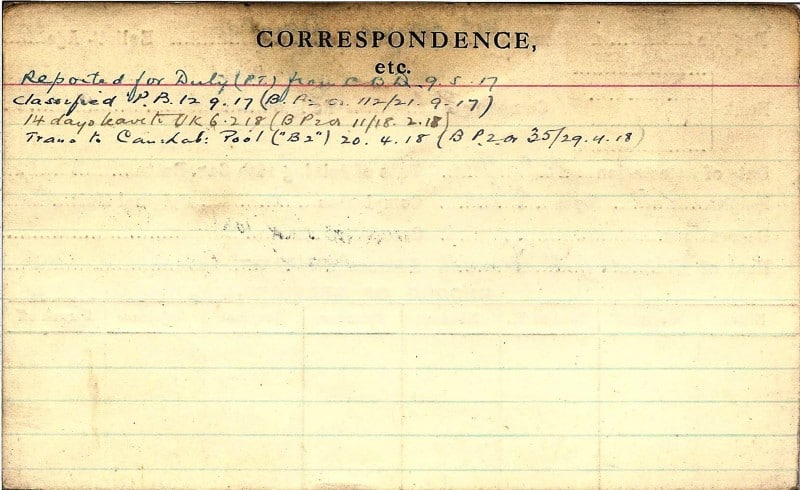 CORRESPONDENCE,
etc.
Reported for Duty (P.T.) from C.B.D. 9.5.17
Classified "P.B. 12 9.17 (B. P2 or 112/21.9.17)
14 days leave to UK 6.2.18 (B P2 or 11/18.2.18)
Trans to Can: Lab: Pool ("B2") 20.4.18 (B P.2 or 35/29.4.18)